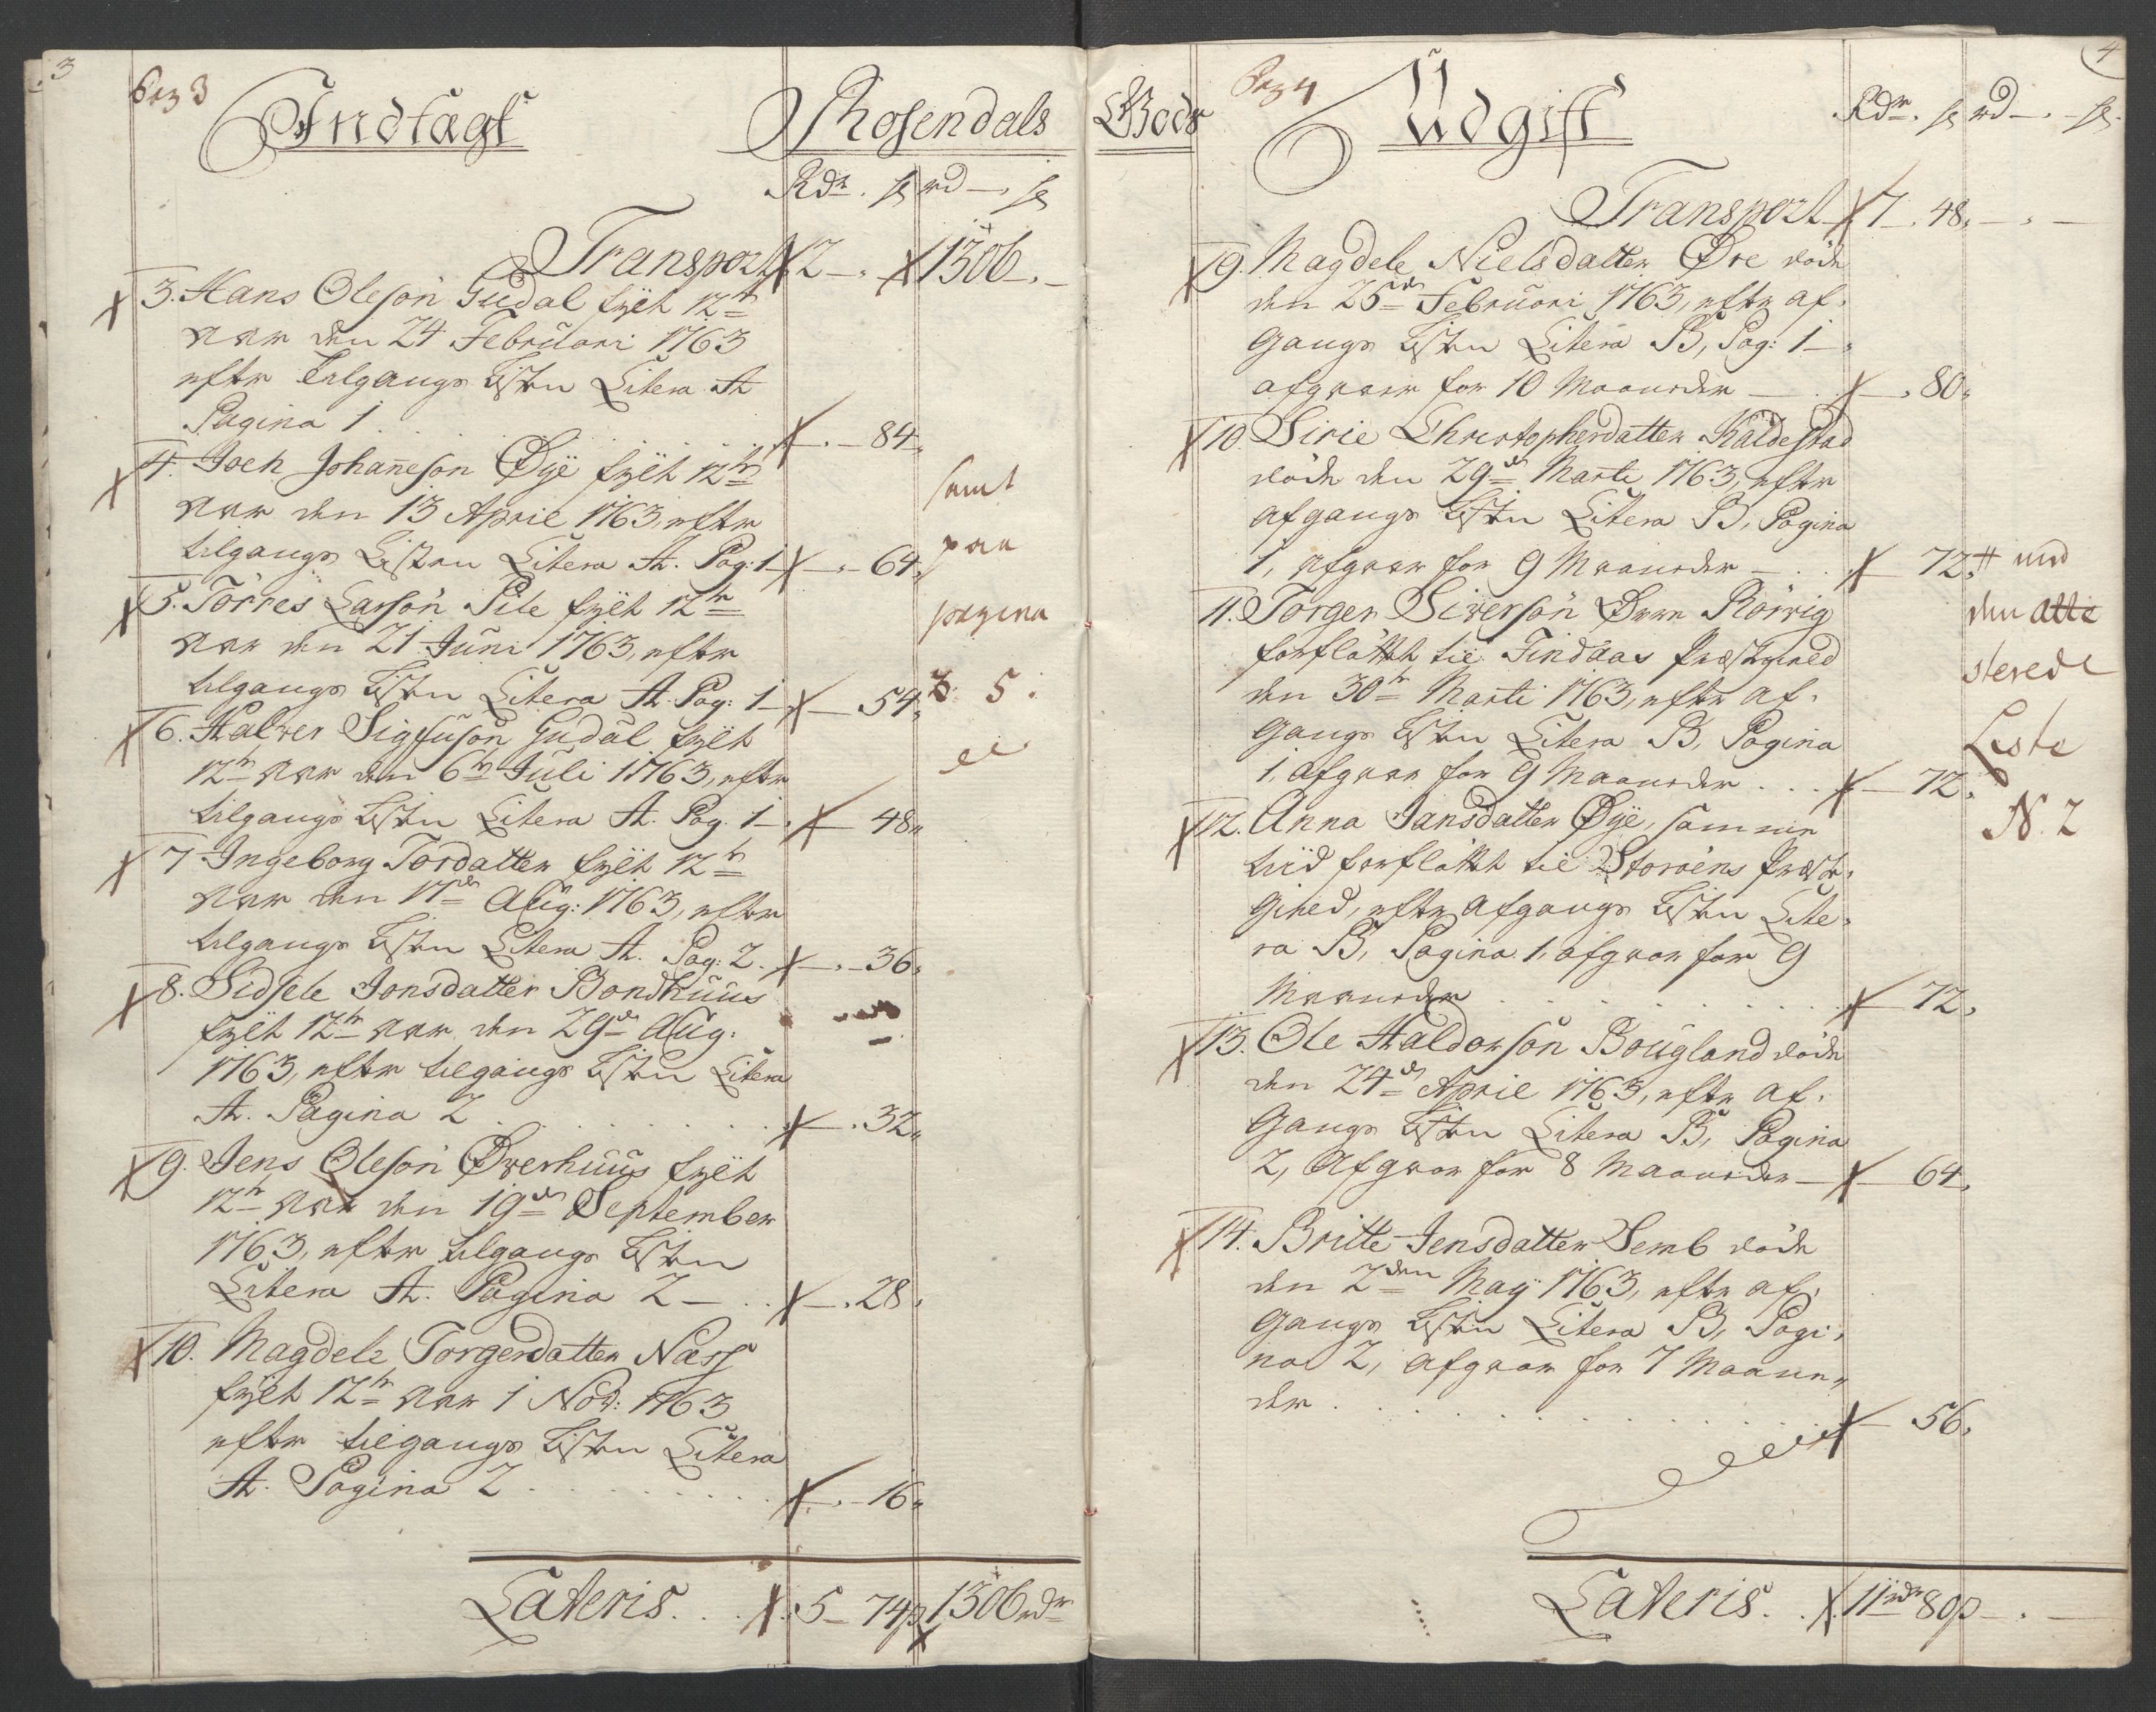 3
Pag 3
Indtagt
Rosendals
Rdr. ß rd — ß
Transport 2 — 1306 — . —
3. Hans Oleson Gudal fylt 12te
Aar den 24 Februari 1763
efter Tilgangs Listen Litera A
Pagina 1 . . . — 84 „
4. Joen Johañeson Øÿe fylt 12te
Aar den 13 April 1763, efter
tilgangs Listen Litera A. Pag: 1 — 64 „
5. Torres Larson Pile fylt 12te
Aar den 21 Juni 1763, efter
tilgangs Listen Litera A. Pag: 1 — 54 „
6. Halver Sigfuson Gudal fylt
12te Aar den 6te Juli 1763, efter
tilgangs Listen Litera A. Pag. 1 — 48 „
7 Ingeborg Tordatter fylt 12te
Aar den 17de Aug: 1763, efter
tilgangs Listen Litera A. Pag: 2 . — 36 „
8. Sidsele Jonsdatter Bondhuus
fylt 12te Aar den 29de Aug.
1763, efter tilgangs Listen Litera
A. Pagina 2 . . . — 32 „
9. Jens Oleson Øverhuus fylt
12te Aar den 19de September
1763, efter tilgangs Listen
Litera A. Pagina 2 — . . — 28 „
10. Magdele Torgerdatter Næss
fylt 12te Aar 1 Nov: 1763
efter tilgangs Listen Litera
A. Pagina 2 . . . — 16 „
samt
paa
pagina
5.
Lateris. . . 5 — 74ß 1306 rdr
4
Pag 4
Gods
Udgift
Rdr. ß rd — . — ß.
Transport 7 . 48 „ — „ —
9. Magdele Nielsdatter Øre døde
den 25de Februari 1763, efter af-
gangs Listen Litera B, Pag: 1 —
afgaaer for 10 Maaneder — . — 80 „
10. Sirie Christopherdatter Kaldestad
døde den 29de Marti 1763, efter
afgangs Listen Litera B, Pagina
1, afgaar for 9 Maaneder — . . — 72 „
11. Torger Siverson Øvre Rörvig
forfløttet til Findaas Præstegield
den 30te Marti 1763, efter af-
gangs Listen Litera B, Pagina
1, afgaar for 9 Maaneder . . . — 72 „
12. Anna Jansdatter Øÿe, samme
tiid forfløttet til Storöens Præste-
gield, efter afgangs Listen Lite-
ra B, Pagina 1, afgaar for 9
Maaneder . . . — 72 „
13. Ole Haldorson Bougland døde
den 24de April 1763, efter af-
gangs Listen Litera B, Pagina
2, afgaar for 8 Maaneder — — 64 „
14. Britte Jensdatter Semb døde
den 2den Maÿ 1763, efter af-
gangs Listen Litera B, Pagi-
na 2, afgaar for 7 Maane-
der . . . — 56 „
# med
den atte
sterede
Liste
N. 2
Lateris. . . 11 rdr 80ß — . —